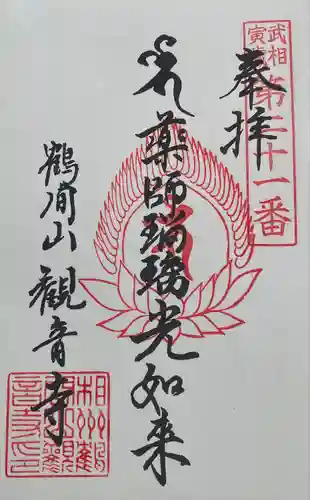 武相
寅歳
第二十一番
奉拝
薬師瑠璃光如来
鶴間山
観音寺